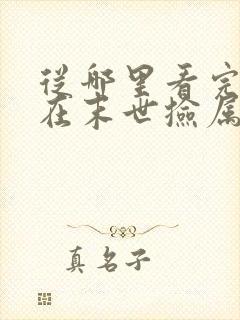 從哪里看完
在末世撿属
真名子